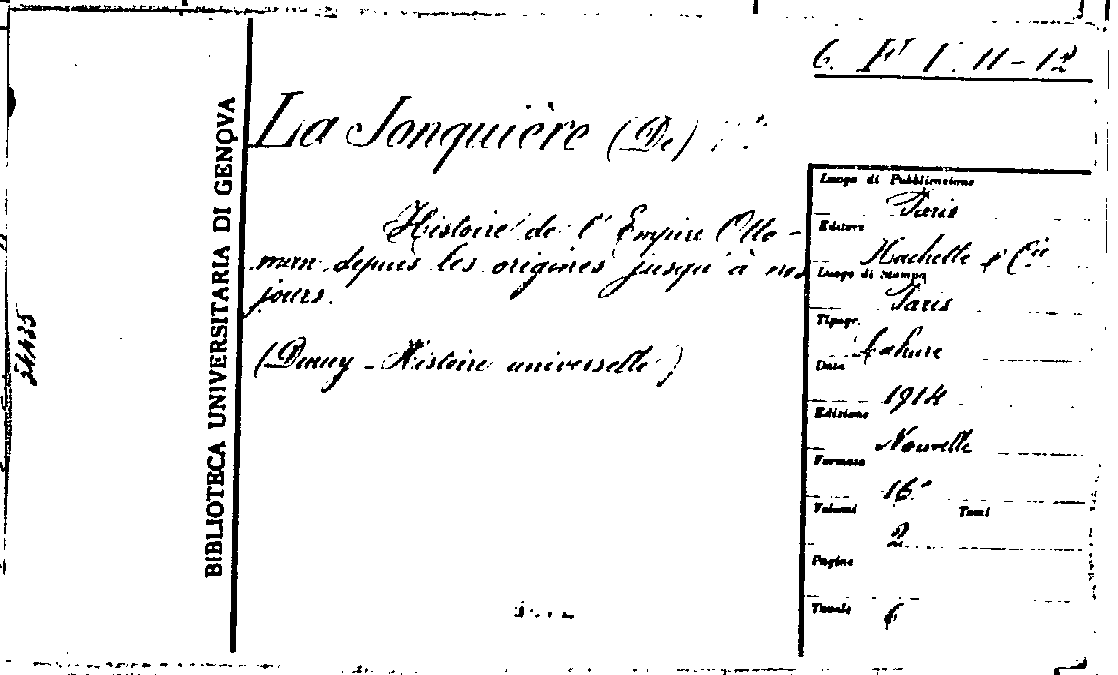 6. F I. 11-12
BIBLIOTECA UNIVERSITARIA DI GENOVA
La Jonquière (De)
Histoire de l'Empire Otto-
man depuis les origines jusqu'à nos
jours.
(Duruy - Histoire universelle)
Luogo di Pubblicazione
Paris
Editore
Hachette & Cie
Luogo di Stampa
Paris
Tipogr.
Lahure
Data
1914
Edizione
Nouvelle
Formato
16°
Volumi Tomi
2
Pagine
Tavole
6